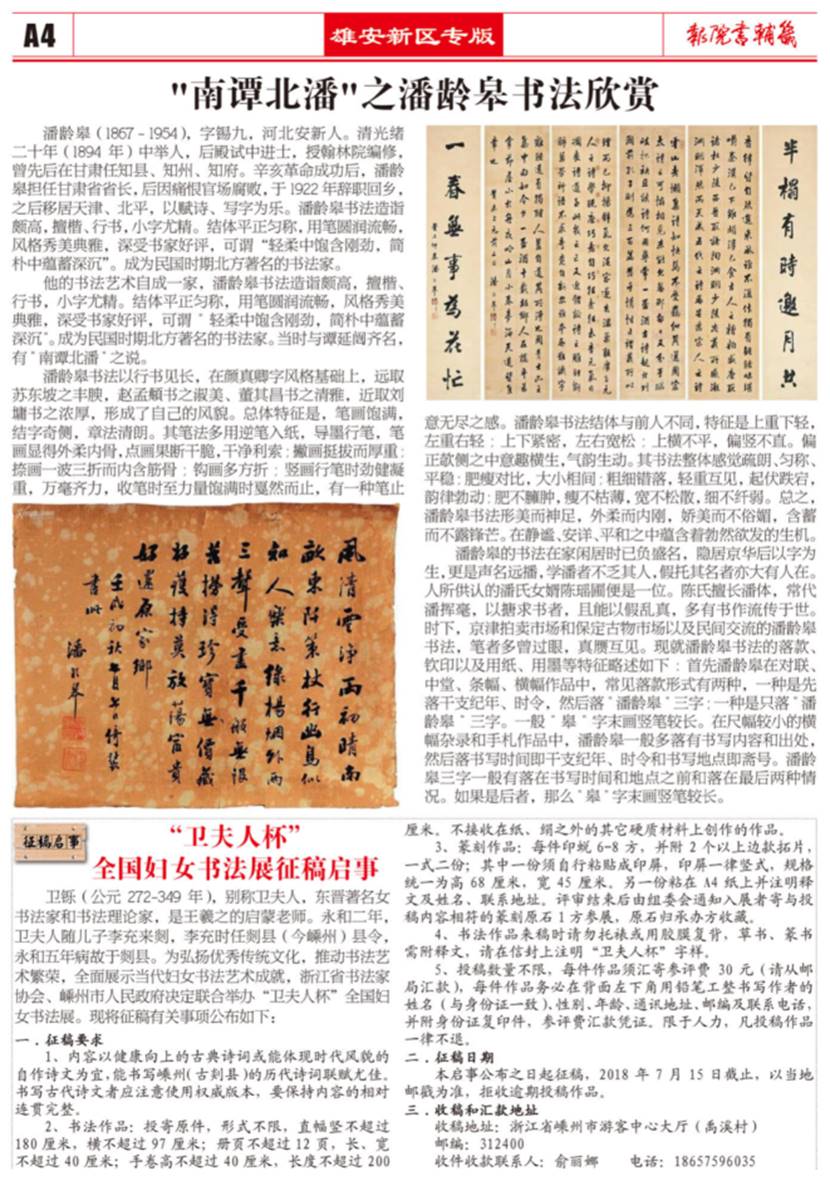 A4
雄安新区专版
"南谭北潘"之潘龄皋书法欣赏
潘龄皋（1867-1954），字锡九，河北安新人。清光绪
二十年（1894 年）中举人，后殿试中进士，授翰林院编修，
曾先后在甘肃任知县、知州、知府。辛亥革命成功后，潘龄
皋担任甘肃省省长，后因痛恨官场腐败，于 1922 年辞职回乡，
之后移居天津、北平，以赋诗、写字为乐。潘龄皋书法造诣
颇高，擅楷、行书，小字尤精。结体平正匀称，用笔圆润流畅，
风格秀美典雅，深受书家好评，可谓“轻柔中饱含刚劲，简
朴中蕴蓄深沉”。成为民国时期北方著名的书法家。
他的书法艺术自成一家，潘龄皋书法造诣颇高，擅楷、
行书，小字尤精。结体平正匀称，用笔圆润流畅，风格秀美
典雅，深受书家好评，可谓＂轻柔中饱含刚劲，简朴中蕴蓄
深沉＂。成为民国时期北方著名的书法家。当时与谭延闿齐名，
有＂南谭北潘＂之说。
潘龄皋书法以行书见长，在颜真卿字风格基础上，远取
苏东坡之丰腴，赵孟頫书之淑美、董其昌书之清雅，近取刘
墉书之浓厚，形成了自己的风貌。总体特征是，笔画饱满，
结字奇侧，章法清朗。其笔法多用逆笔入纸，导墨行笔，笔
画显得外柔内骨，点画果断干脆，干净利索；撇画挺拔而厚重；
捺画一波三折而内含筋骨；钩画多方折；竖画行笔时劲健凝
重，万毫齐力，收笔时至力量饱满时戛然而止，有一种笔止
半榻有时邀月共
一春无事为花忙
意无尽之感。潘龄皋书法结体与前人不同，特征是上重下轻，
左重右轻；上下紧密，左右宽松；上横不平，偏竖不直。偏
正欹侧之中意趣横生，气韵生动。其书法整体感觉疏朗、匀称、
平稳；肥瘦对比，大小相间；粗细错落，轻重互见，起伏跌宕，
韵律勃动；肥不臃肿，瘦不枯薄，宽不松散，细不纤弱。总之，
潘龄皋书法形美而神足，外柔而内刚，娇美而不俗媚，含蓄
而不露锋芒。在静谧、安详、平和之中蕴含着勃然欲发的生机。
潘龄皋的书法在家闲居时已负盛名，隐居京华后以字为
生，更是声名远播，学潘者不乏其人，假托其名者亦大有人在。
人所供认的潘氏女婿陈瑶圃便是一位。陈氏擅长潘体，常代
潘挥毫，以搪求书者，且能以假乱真，多有书作流传于世。
时下，京津拍卖市场和保定古物市场以及民间交流的潘龄皋
书法，笔者多曾过眼，真赝互见。现就潘龄皋书法的落款、
钦印以及用纸、用墨等特征略述如下：首先潘龄皋在对联、
中堂、条幅、横幅作品中，常见落款形式有两种，一种是先
落干支纪年、时令，然后落＂潘龄皋＂三字；一种是只落＂潘
龄皋＂三字。一般＂皋＂字末画竖笔较长。在尺幅较小的横
幅杂录和手札作品中，潘龄皋一般多落有书写内容和出处，
然后落书写时间即干支纪年、时令和书写地点即斋号。潘龄
皋三字一般有落在书写时间和地点之前和落在最后两种情
况。如果是后者，那么＂皋＂字末画竖笔较长。
征稿启事
“卫夫人杯”
全国妇女书法展征稿启事
卫铄（公元 272-349 年），别称卫夫人，东晋著名女
书法家和书法理论家，是王羲之的启蒙老师。永和二年，
卫夫人随儿子李充来剡，李充时任剡县（今嵊州）县令，
永和五年病故于剡县。为弘扬优秀传统文化，推动书法艺
术繁荣，全面展示当代妇女书法艺术成就，浙江省书法家
协会、嵊州市人民政府决定联合举办“卫夫人杯”全国妇
女书法展。现将征稿有关事项公布如下：
一．征稿要求
1、内容以健康向上的古典诗词或能体现时代风貌的
自作诗文为宜，能书写嵊州（古剡县）的历代诗词联赋尤佳。
书写古代诗文者应注意使用权威版本，要保持内容的相对
连贯完整。
2、书法作品：投寄原件，形式不限，直幅竖不超过
180 厘米，横不超过 97 厘米；册页不超过 12 页，长、宽
不超过 40 厘米；手卷高不超过 40 厘米，长度不超过 200
厘米。不接收在纸、绢之外的其它硬质材料上创作的作品。
3、篆刻作品：每件印蜕 6-8 方，并附 2 个以上边款拓片，
一式二份；其中一份须自行粘贴成印屏，印屏一律竖式，规格
统一为高 68 厘米，宽 45 厘米。另一份粘在 A4 纸上并注明释
文及姓名、联系地址。评审结束后由组委会通知入展者寄与投
稿内容相符的篆刻原石 1 方参展，原石归承办方收藏。
4、书法作品来稿时请勿托裱或用胶膜复背，草书、篆书
需附释文，请在信封上注明“卫夫人杯”字样。
5、投稿数量不限，每件作品须汇寄参评费 30 元（请从邮
局汇款），每件作品务必在背面左下角用铅笔工整书写作者的
姓名（与身份证一致）、性别、年龄、通讯地址、邮编及联系电话，
并附身份证复印件，参评费汇款凭证。限于人力，凡投稿作品
一律不退。
二．征稿日期
本启事公布之日起征稿，2018 年 7 月 15 日截止，以当地
邮戳为准，拒收逾期投稿作品。
三．收稿和汇款地址
收稿地址：浙江省嵊州市游客中心大厅（禹溪村）
邮编：312400
收件收款联系人：俞丽娜　　电话：18657596035